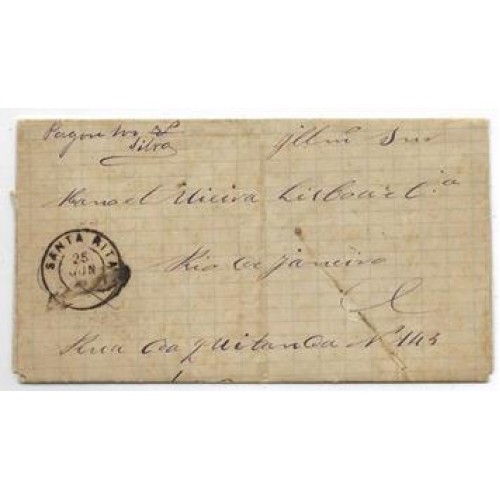 Pagou 100 Rs
Silva
Illmo Snr
Manoel Vieira Lisboa & Cia
Rio de Janeiro
Rua da Quitanda Nº 145
SANTA RITA
25
JUN